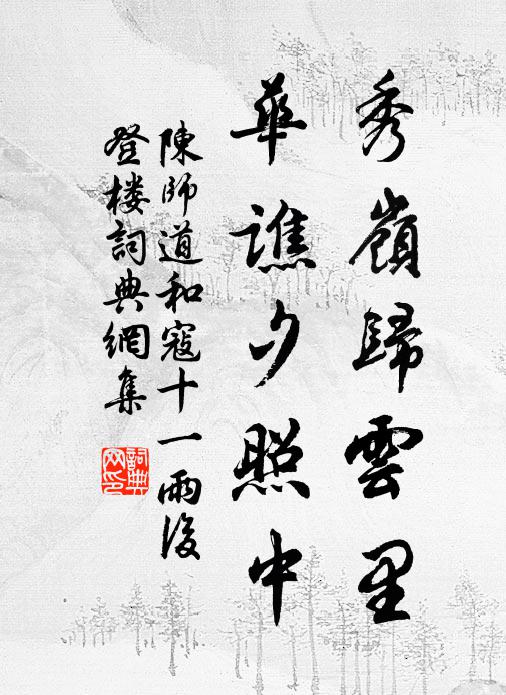 秀嶺歸雲里
華譙夕照中
陳師道和寇十一雨後
登楼詞典網集
詞典网印